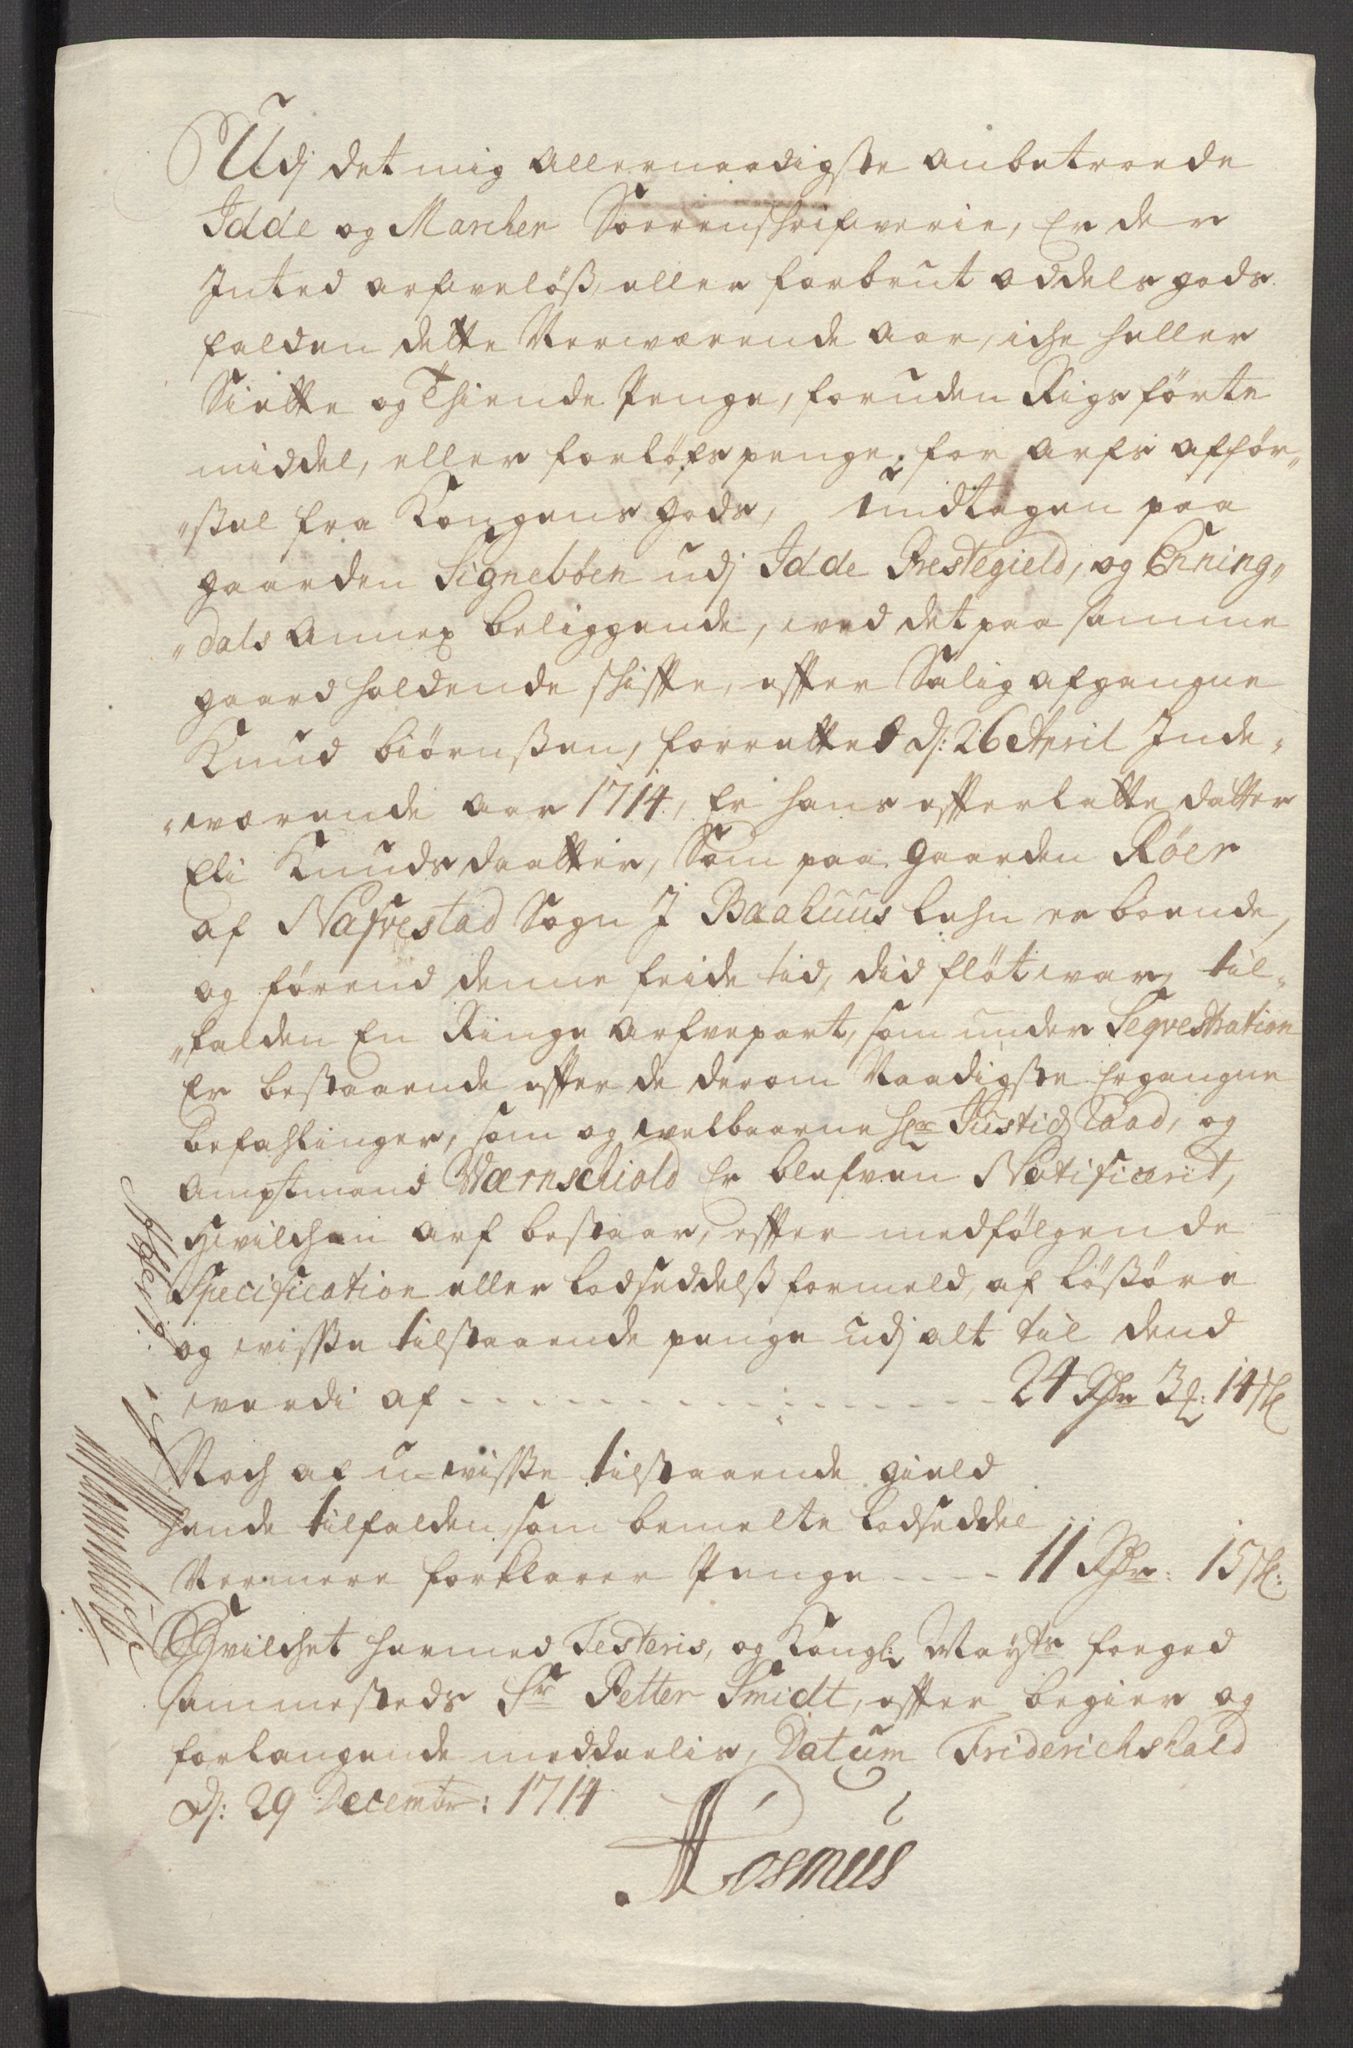 Udj det mig allernaadigste anbetroede
Idde og Marcher Sorrenschrifverie, Er der
Inted arfveløß, eller forbrut oddels gods
falden dette Nerværende aar, iche heller
Siette og Thiende Penge, foruden Rigs førte
middel, eller forløfs penge for arfs afför„
„ßel fra Kongens gods, undtagen paa
gaarden Signebøen udj Idde Prestegield, og Enning„
„dals Annex beliggende, ved det paa samme
gaard holdende schiffte, effter Salig afgangne
Knud biørnßen, forrettet d: 26 April Inde„
„værende aar 1714, Er hans effterlatte datter
Eli Knudsdaatter, Som paa gaarden Röer
af Nafvestad Sogn J Baahuus Lehn er boende,
og førend denne feide tid, did fløt var, til„
„falden En Ringe arfvepart, som under Seqvestration
Er bestaaende effter de derom Naadigste Ergangne
befahlinger, som og velbaarne Hr Justid Raad, og
Amptmand Wærnschiold Er blefven Notificerit,
Hvilchen arf bestaar, effter medfølgende
Specification eller Lodseddelß formeld, af Lößøre
og visse tilstaaende penge udj alt til dend
verdi af - - - - - - - - - 24 Rdr 3 q: 14 s
Noch af u-visse tilstaaende gield
hende tilfalden, som bemelte Lodseddel
Nermere forklarer Penge - - - - 11 Rdr: 15 s:
Hvilchet hermed Testeris, og Kongl: Mayts foeged
sammesteds Sr Petter Smidt, effter begier og
forlangende meddeelis, Datum Friderichshald
d: 29 Decembr: 1714
Rosmus